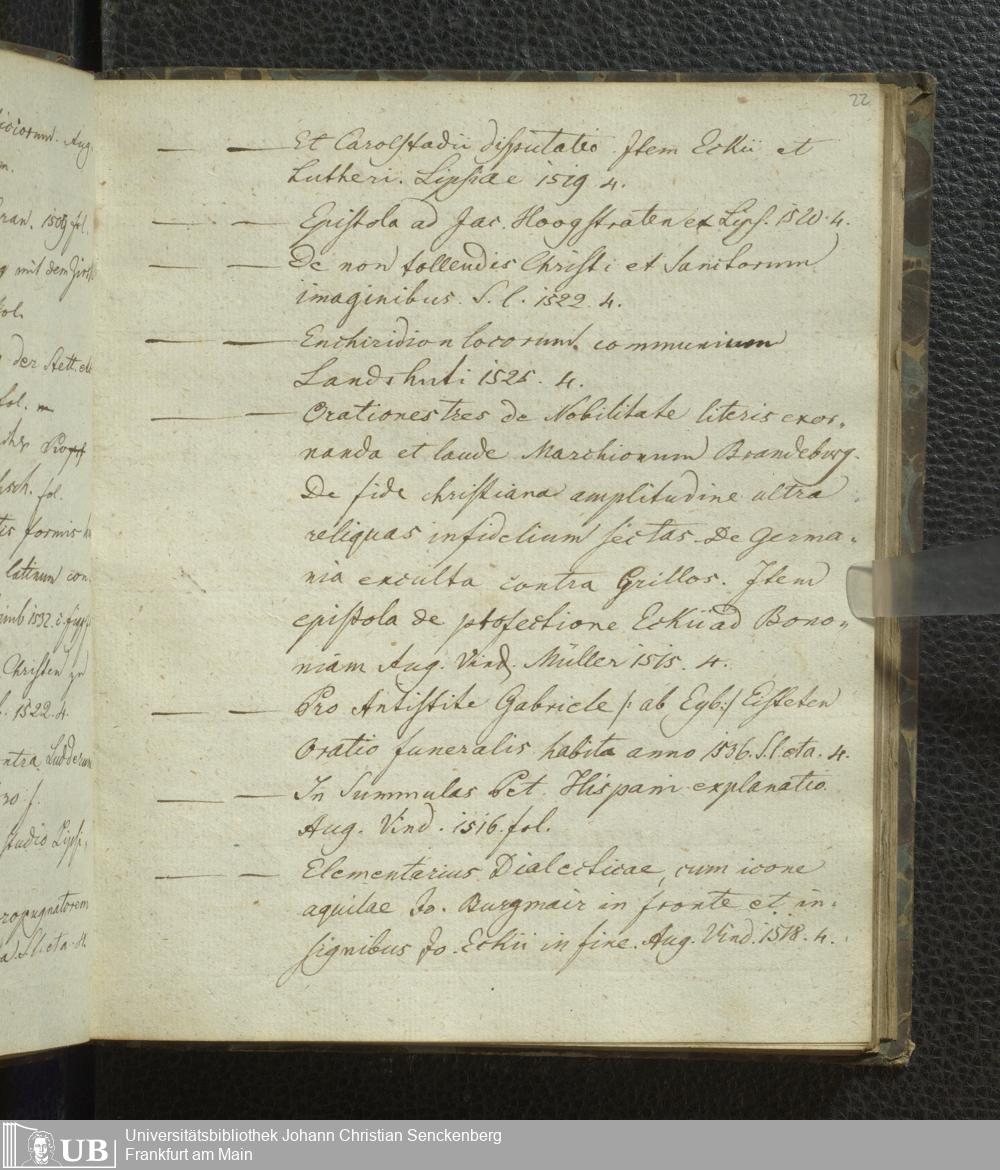 22
— — Et Carolstadii disputatio. Item Eckii et
Lutheri. Lipsiae 1519 4.
— — Epistola ad Jac. Hoogstraten ex Lips. 1520. 4.
— — De non tollendis Christi et Sanctorum
imaginibus. S. l. 1522. 4.
— — Enchiridion locorum communium
Landshuti 1525. 4.
— — Orationes tres de Nobilitate literis exor„
nanda et laude Marchionum Brandeburg.
De fide christiana amplitudine ultra
reliquas infidelium sectas. De Germa„
nia exculta contra Grillos. Item
epistola de profectione Eckii ad Bono„
niam Aug. Vind. Müller 1515. 4.
— — Pro Antistite Gabriele /: ab Eyb:/ Eisteten
Oratio funeralis habita anno 1536. S. l. et a. 4.
— — In Summulas Pet. Hispani explanatio
Aug. Vind. 1516. fol.
— — Elementarius Dialecticae, cum icone
aquilae Jo. Burgmair in fronte et in„
signibus Jo. Eckii in fine. Aug. Vind. 1518. 4.
Aug
1509 fol.
mit dem
fol.
der Stett
fol.
fol.
formis
latinum con
1532. c. fig
Christen zu
1522. 4.
Studio Lips.
S. l. et a.
UB
Universitätsbibliothek Johann Christian Senckenberg
Frankfurt am Main